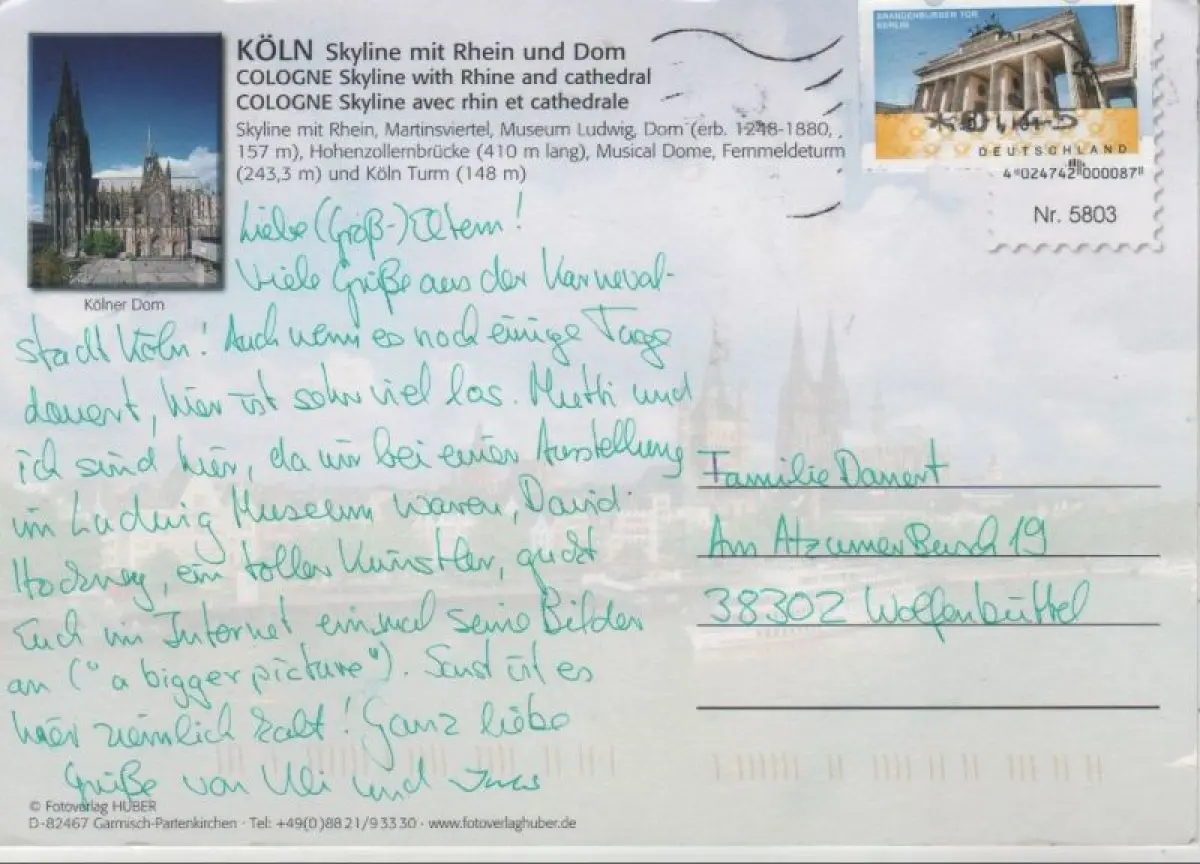 KÖLN Skyline mit Rhein und Dom
COLOGNE Skyline with Rhine and cathedral
COLOGNE Skyline avec rhin et cathedrale
Skyline mit Rhein, Martinsviertel, Museum Ludwig, Dom (erb. 1248-1880,
157 m), Hohenzollernbrücke (410 m lang), Musical Dome, Fernmeldeturm
(243,3 m) und Köln Turm (148 m)
Kölner Dom
BRANDENBURGER TOR
BERLIN
DEUTSCHLAND
4 024742 000087
Nr. 5803
Liebe (Groß-)Eltern!
Viele Grüße aus der Karneval-
stadt Köln! Auch wenn es noch einige Tage
dauert, hier ist sehr viel los. Mutti und
ich sind hier, da wir bei einer Ausstellung
im Ludwig Museum waren, David
Hockney, ein toller Künstler, guckt
Euch im Internet einmal seine Bilder
an ("a bigger picture"). Sonst ist es
hier ziemlich kalt! Ganz liebe
Grüße von Uli und
Familie Danert
Am Atzumer Busch 19
38302 Wolfenbüttel
© Fotoverlag HUBER
D-82467 Garmisch-Partenkirchen · Tel: +49(0)8821/93330 · www.fotoverlaghuber.de